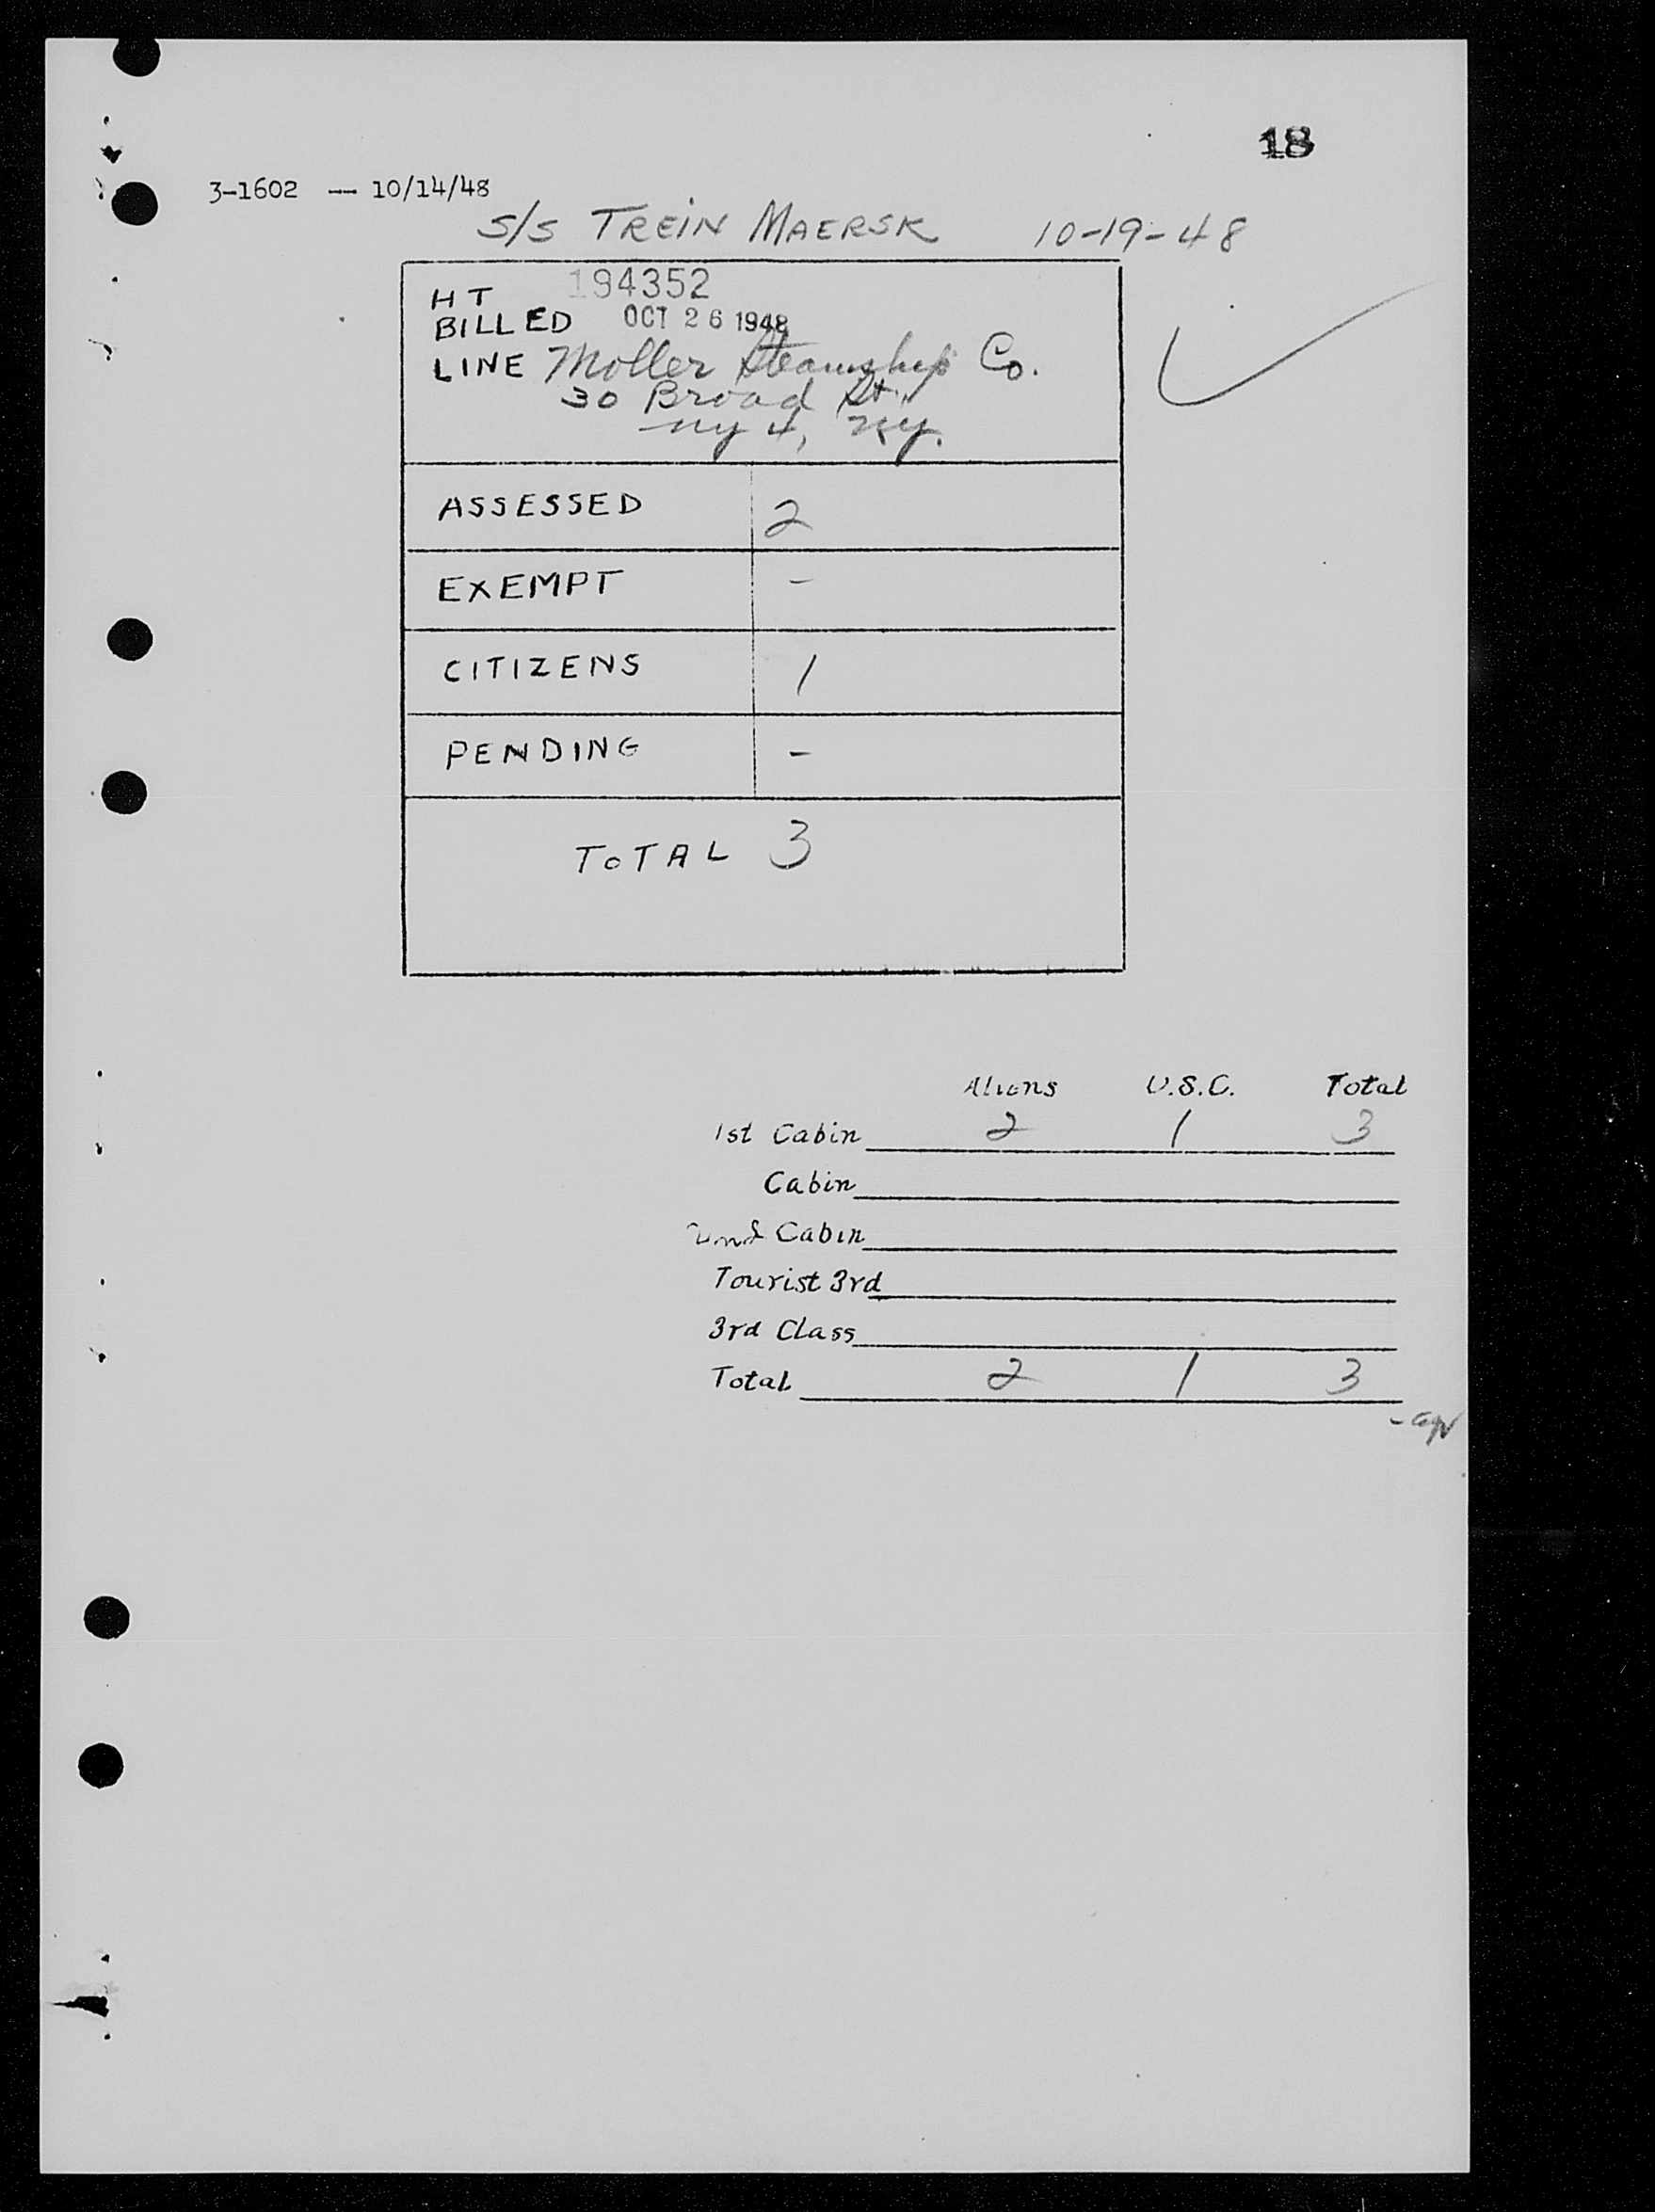 18
3-1602 -- 10/14/48
S/S TREIN MAERSK 10-19-48
HT 194352
BILLED OCT 26 1948
LINE Moller Steamship Co.
30 Broad St.,
NY 4, NY.
ASSESSED 2
EXEMPT -
CITIZENS 1
PENDING -
TOTAL 3
Aliens U.S.C. Total
1st Cabin 2 1 3
Cabin
2nd Cabin
Tourist 3rd
3rd Class
Total 2 1 3